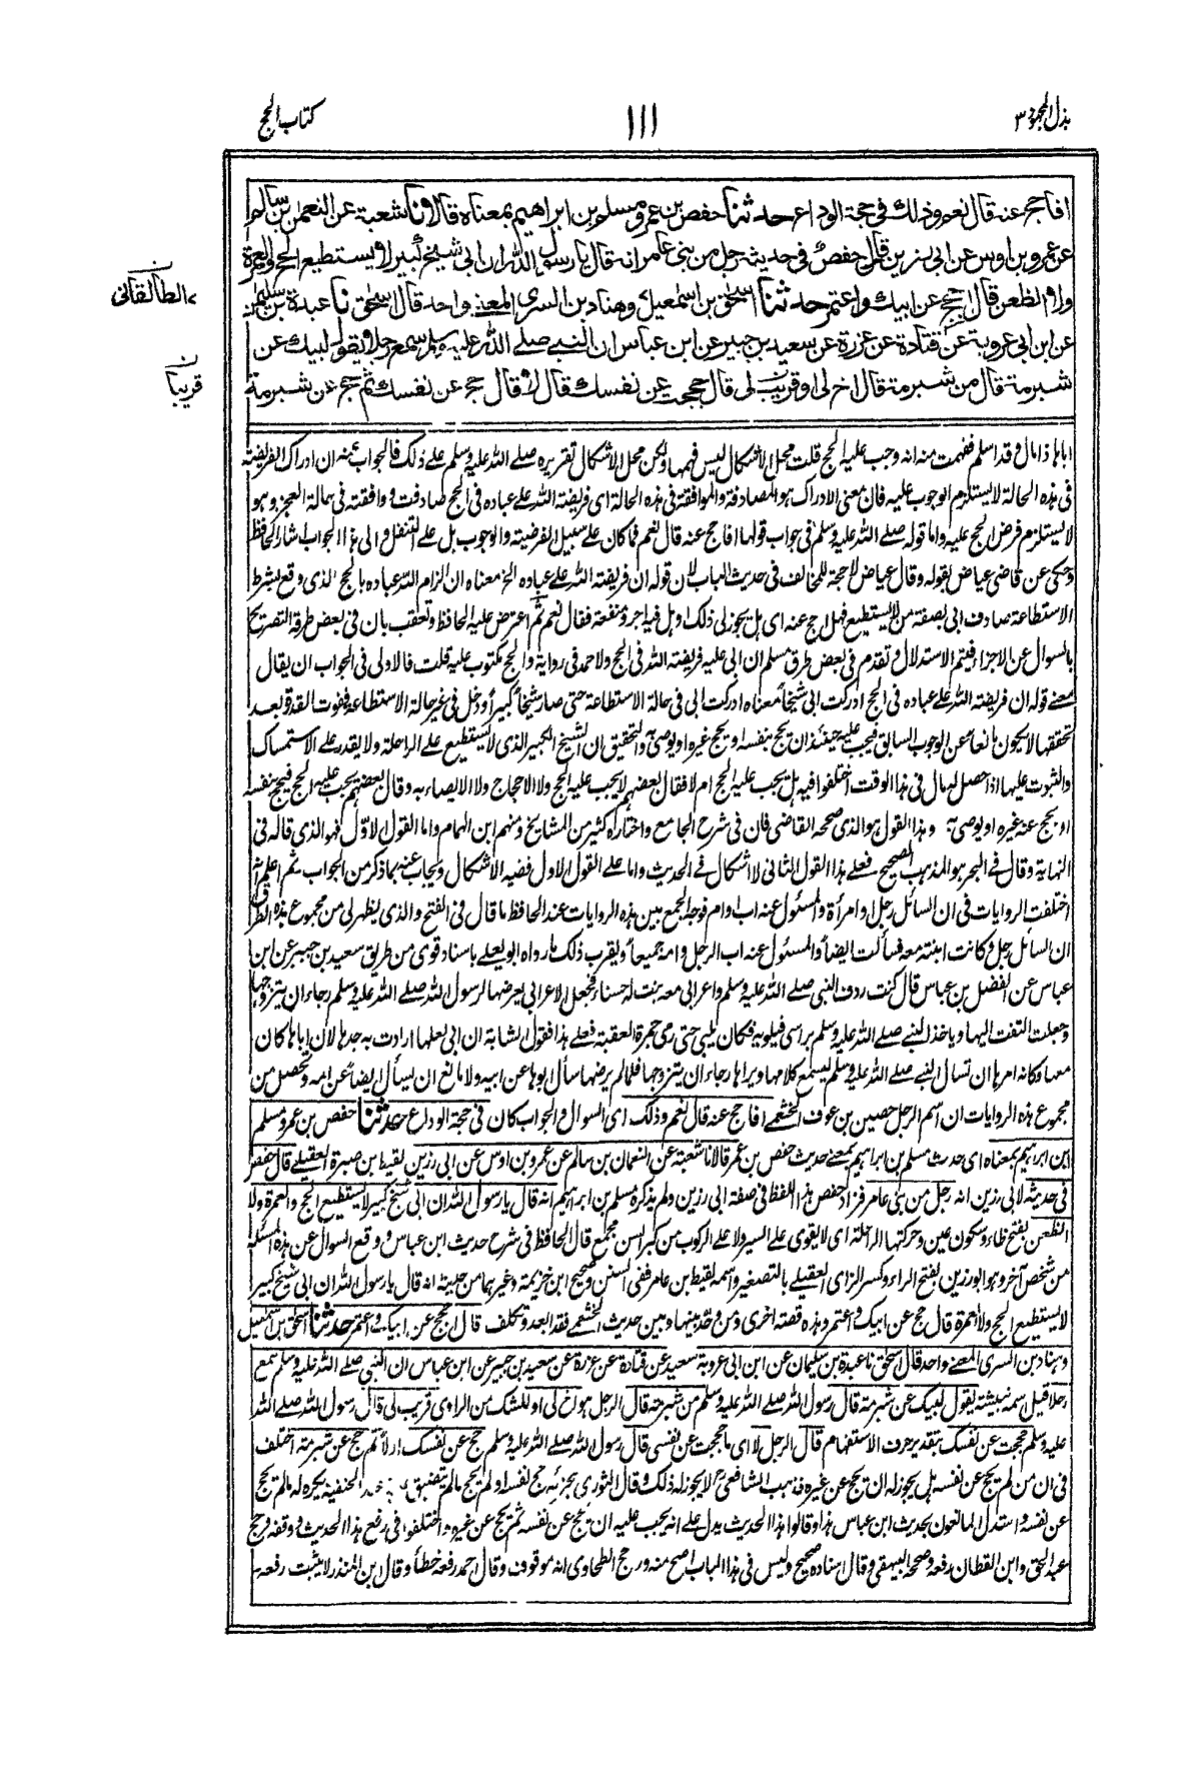 بذل المجهود ٣
١١١
كتاب الحج
افأحج عنه قال نعم وذلك فى حجة الوداع حدثنا حفص بن عمرو مسلم بن ابراهيم بمعناه قالا نا شعبة عن النعمان بن سالم
عن عمرو بن اوس عن ابى رزين قال حفص فى حديثه رجل من بنى عامر انه قال يا رسول الله ان ابى شيخ كبير لا يستطيع الحج والعمرة
ولا الظعن قال احجج عن ابيك واعتمر حدثنا اسحق بن اسمعيل وهناد بن السرى المعنى واحد قال اسحق نا عبدة بن سليمن
الطالقانى
عن ابن ابى عروبة عن قتادة عن عزرة عن سعيد بن جبير عن ابن عباس ان النبى صلى الله عليه وسلم سمع رجلا يقول لبيك عن
شبرمة قال من شبرمة قال اخ لى او قريب لى قال حججت عن نفسك قال لا قال حج عن نفسك ثم حج عن شبرمة
قريبا
اباها ذا مال وقد اسلم ففهمت منه انه وجب عليه الحج قلت محل الاشكال ليس فهمها ولكن محل الاشكال تقريره صلى الله عليه وسلم على ذلك فالجواب عنه ان ادراك الفريضة
فى هذه الحالة لا يستلزم الوجوب عليه فان معنى الادراك هو المصادفة والموافقة فى هذه الحالة اى فريضة الله على عباده فى الحج صادفت ووافقته فى حالة العجز وهو
لا يستلزم فرض الحج عليه واما قوله صلى الله عليه وسلم فى جواب قولها افاحج عنه قال نعم فما كان على سبيل الفرضية والوجوب بل على التنفل والى هذا الجواب اشار الحافظ
وحكى عن قاضى عياض بقوله وقال عياض لا حجة للمخالف فى حديث الباب لان قوله ان فريضة الله على عباده الخ معناه ان الزام الله عباده بالحج الذى وقع بشرط
الاستطاعة صادف ابى بصفة من لا يستطيع فهل احج عنه اى هل يجوز لى ذلك وهل فيه اجر ومنفعة فقال نعم ثم اعترض عليه الحافظ وتعقب بان فى بعض طرقه التصريح
بالسوال عن الاجزاء فيتم الاستدلال وتقدم فى بعض طرق مسلم ان ابى عليه فريضة الله فى الحج ولاحمد فى رواية والحج مكتوب عليه قلت فالاولى فى الجواب ان يقال
معنى قوله ان فريضة الله على عباده فى الحج ادركت ابى شيخا معناه ادركت ابى فى حالة الاستطاعة حتى صار شيخا كبيرا ودخل فى غير حالة الاستطاعة ففوت القدرة بعد
تحققها لا يكون مانعا عن الوجوب السابق فيجب عليه حينئذ ان يحج بنفسه او يحج غيره او يوصى به والتحقيق ان الشيخ الكبير الذى لا يستطيع على الراحلة ولا يقدر على الاستمساك
والثبوت عليها اذا حصل له مال فى هذا الوقت اختلفوا فيه هل يجب عليه الحج ام لا فقال بعضهم لا يجب عليه الحج ولا الاحجاج ولا الايصاء به وقال بعضهم يجب عليه الحج فيحج بنفسه
او يحج عنه غيره او يوصى به وهذا القول هو الذى صححه القاضى فان فى شرح الجامع واختاره كثير من المشايخ ومنهم ابن الهمام واما القول الاول فهو الذى قاله فى
النهاية وقال فى البحر هو المذهب الصحيح فعلى هذا القول الثانى لا اشكال فى الحديث واما على القول الاول ففيه الاشكال ويجاب عنه بما ذكر من الجواب ثم اعلم انه
اختلفت الروايات فى ان السائل رجل او امرأة والمسئول عنه اب او ام فوجه الجمع بين هذه الروايات عند الحافظ ما قال فى الفتح والذى يظهر لى من مجموع هذه الطرق
ان السائل رجل وكانت ابنته معه فسألت ايضا والمسئول عنه اب الرجل وامه جميعا ويقرب ذلك ما رواه ابو يعلى باسناد قوى من طريق سعيد بن جبير عن ابن
عباس عن الفضل بن عباس قال كنت ردف النبى صلى الله عليه وسلم واعرابى معه بنت له حسناء فجعل الاعرابى يعرضها لرسول الله صلى الله عليه وسلم رجاء ان يتزوجها
وجعلت التفت اليها وياخذ النبى صلى الله عليه وسلم براسى فيلويه فكان يلبى حتى رمى جمرة العقبة فعلى هذا فقول الشابة ان ابى لعلها ارادت به جدها لان اباها كان
معها وكانه امرها ان تسال النبى صلى الله عليه وسلم ليسمع كلامها ويراها رجاء ان يتزوجها فلما لم يرضها سأل ابوها عن ابيه ولا مانع ان يسأل ايضا عن امه وتحصل من
مجموع هذه الروايات ان اسم الرجل حصين بن عوف الخثعمى افاحج عنه قال نعم وذلك اى السوال والجواب كان فى حجة الوداع حدثنا حفص بن عمرو مسلم
ابن ابراهيم بمعناه اى حديث مسلم بن ابراهيم بمعنى حديث حفص بن عمر قالا نا شعبة عن النعمان بن سالم عن عمرو بن اوس عن ابى رزين لقيط بن صبرة العقيلى قال حفص
فى حديثه لابى رزين انه رجل من بنى عامر فزاد حفص هذا اللفظ فى صفة ابى رزين ولم يذكره مسلم بن ابراهيم انه قال يا رسول الله ان ابى شيخ كبير لا يستطيع الحج والعمرة ولا
الظعن بفتح ظاء وسكون عين وحركتها الراحلة اى لا يقوى على السير ولا على الركوب من كبر السن مجمع قال الحافظ فى شرح حديث ابن عباس ووقع السوال عن هذه المسئلة
من شخص آخر وهو ابو رزين بفتح الراء وكسر الزاى العقيلى بالتصغير واسمه لقيط بن عامر ففى السنن وصحيح ابن خزيمة وغيرهما من حديثه انه قال يا رسول الله ان ابى شيخ كبير
لا يستطيع الحج ولا العمرة قال حج عن ابيك واعتمر وهذه قصة اخرى ومن وحد بينها وبين حديث الخثعمى فقد ابعد وتكلف قال احجج عن ابيك واعتمر حدثنا اسحق بن اسمعيل
وهناد بن السرى المعنى واحد قال اسحق نا عبدة بن سليمان عن ابن ابى عروبة سعيد عن قتادة عن عزرة عن سعيد بن جبير عن ابن عباس ان النبى صلى الله عليه وسلم سمع
رجلا قيل اسمه نبيشة يقول لبيك عن شبرمة قال رسول الله صلى الله عليه وسلم من شبرمة قال الرجل هو اخ لى او للشك من الراوى قريب لى قال رسول الله صلى الله
عليه وسلم حججت عن نفسك بتقدير حرف الاستفهام قال الرجل لا اى ما حججت عن نفسى قال رسول الله صلى الله عليه وسلم حج عن نفسك اولا ثم حج عن شبرمة اختلف
فى ان من لم يحج عن نفسه هل يجوز له ان يحج عن غيره فذهب الشافعى لا يجوز له ذلك وقال الثورى يجزئه حج لنفسه او لم يحج ما لم يتضيق عليه وعند الحنفية يكره له ما لم يحج
عن نفسه واستدل المانعون بحديث ابن عباس هذا وقالوا هذا الحديث يدل على انه يجب عليه ان يحج عن نفسه ثم يحج عن غيره واختلفوا فى رفع هذا الحديث ووقفه ورجح
عبد الحق وابن القطان رفعه وصححه البيهقى وقال اسناده صحيح وليس فى هذا الباب اصح منه ورجح الطحاوى انه موقوف وقال احمد رفعه خطأ وقال ابن المنذر لا يثبت رفعه